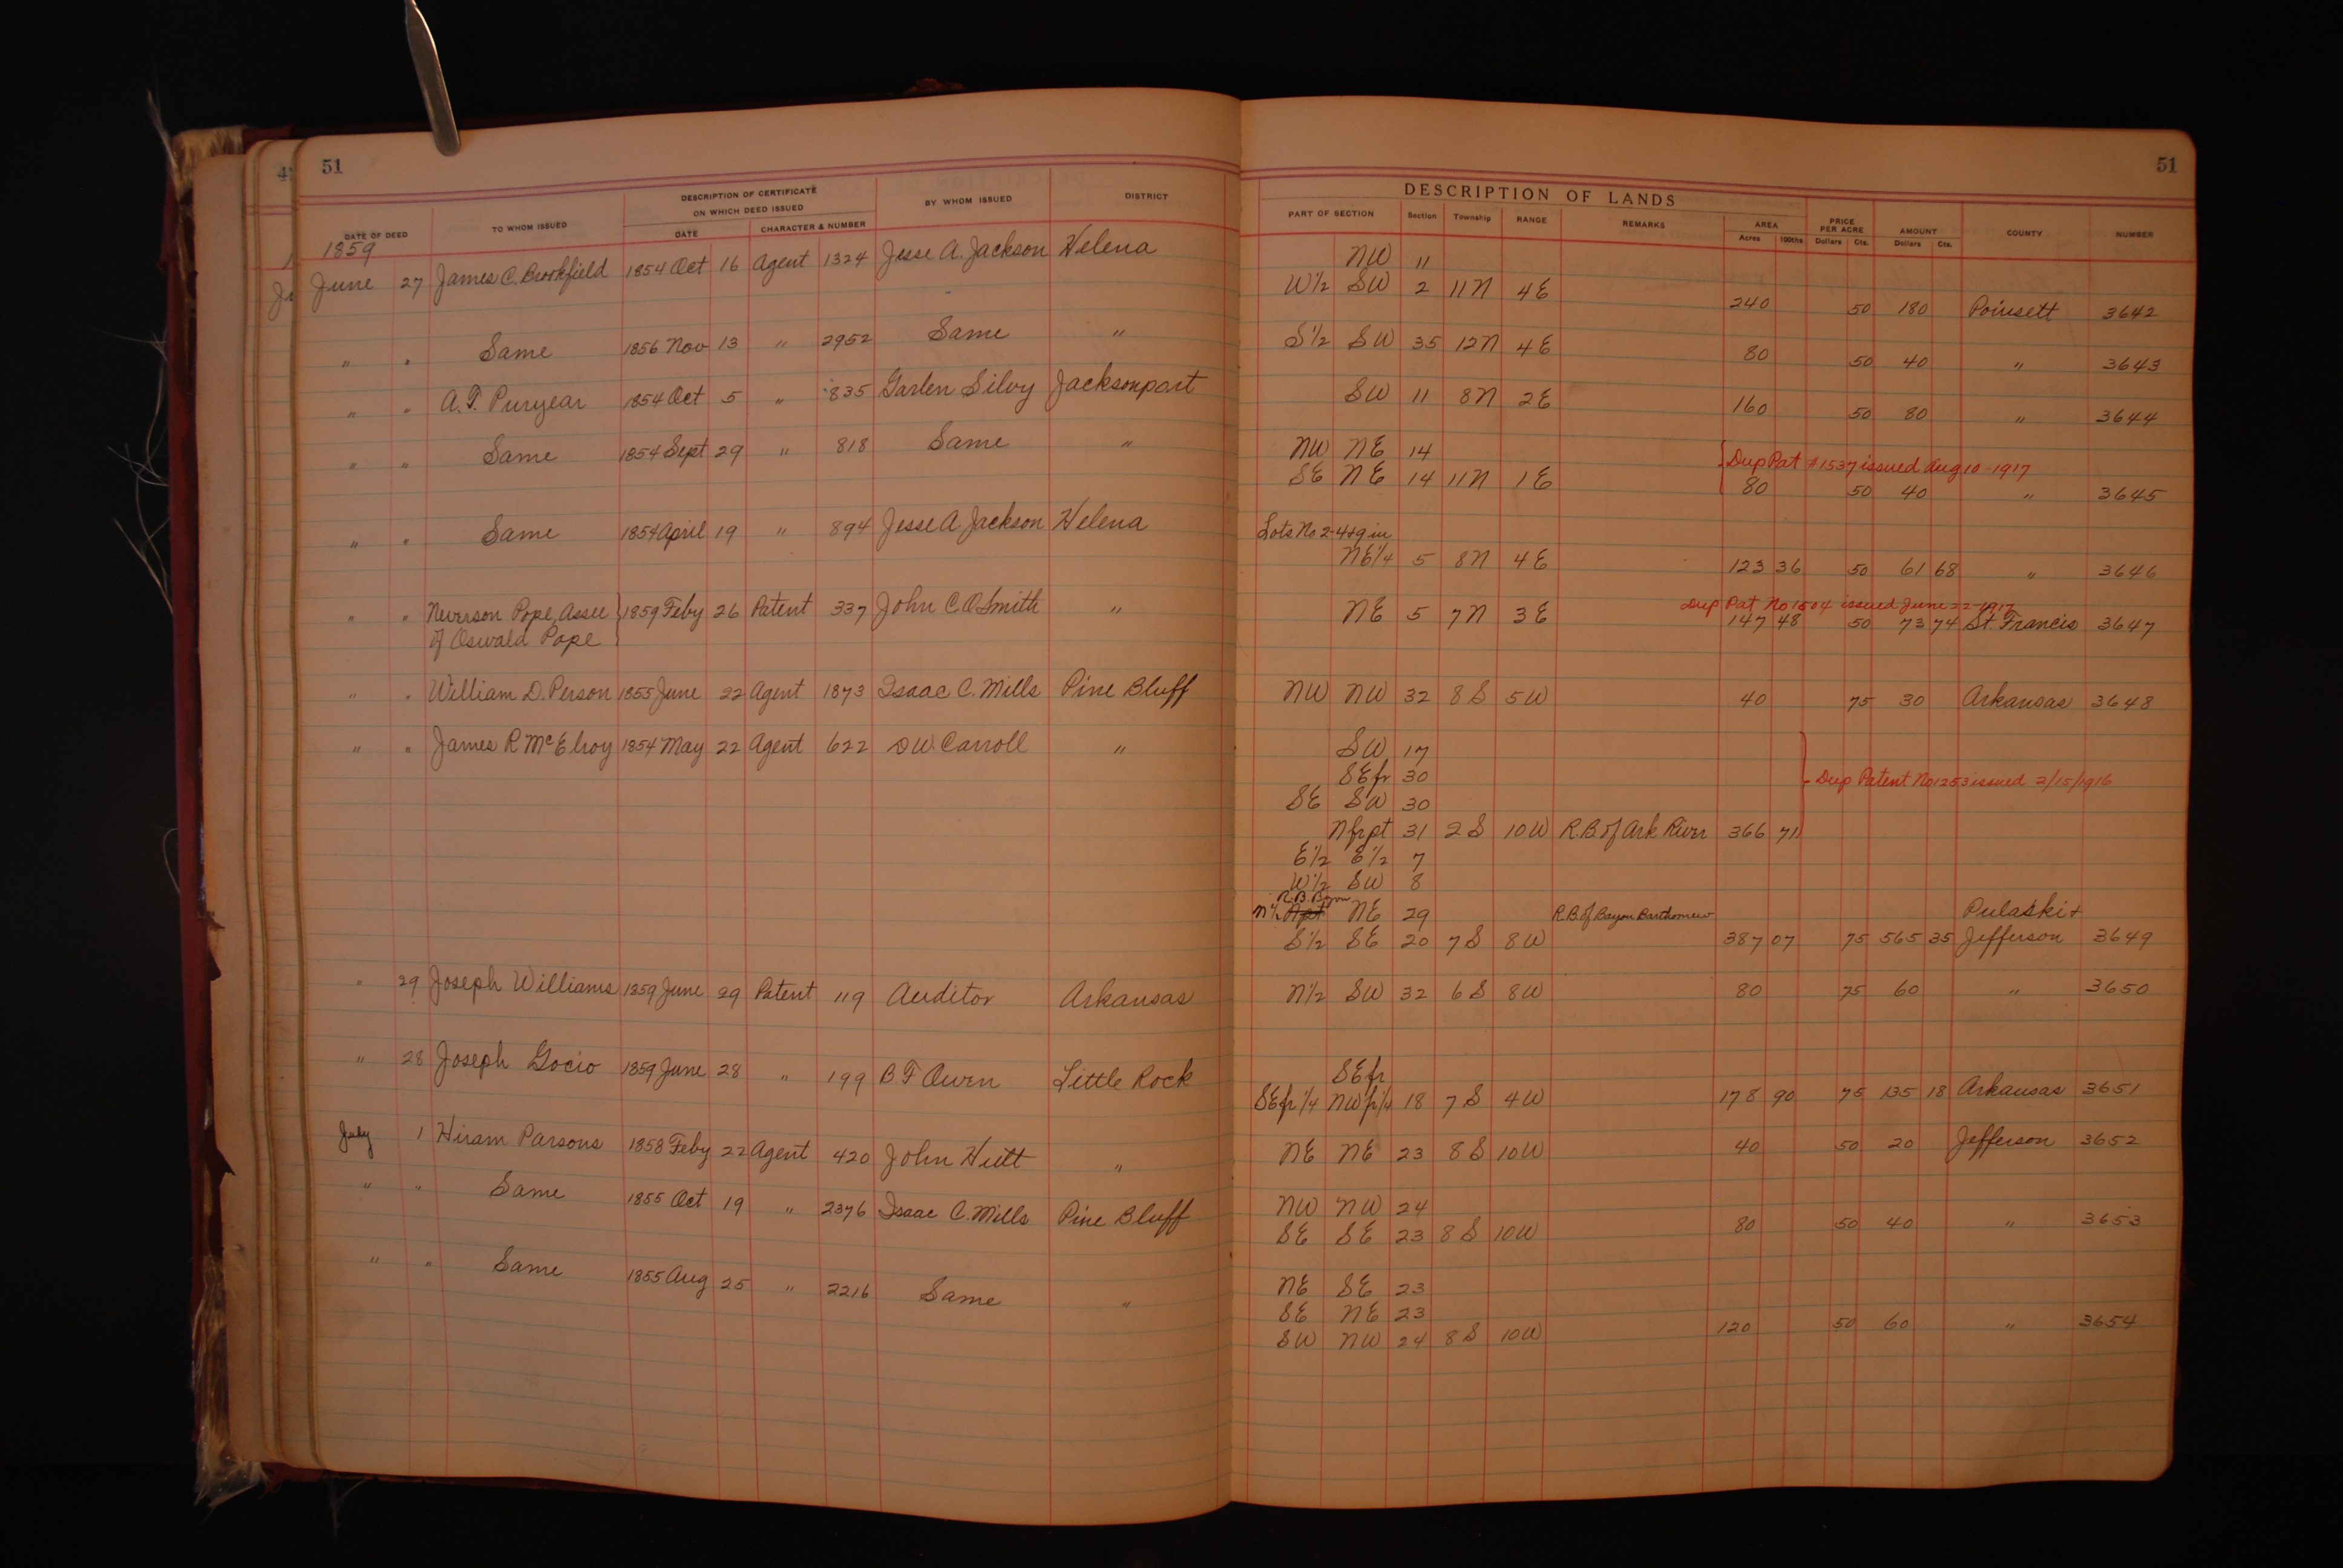 51
DESCRIPTION OF CERTIFICATE
ON WHICH DEED ISSUED
DATE OF DEED TO WHOM ISSUED DATE CHARACTER & NUMBER BY WHOM ISSUED DISTRICT
1859
June 27 James C. Brookfield 1854 Oct 16 Agent 1324 Jesse A. Jackson Helena
" " Same 1856 Nov 13 " 2952 Same "
" " A. F. Puryear 1854 Oct 5 " 835 Garlen Silvy Jacksonport
" " Same 1854 Sept 29 " 818 Same "
" " Same 1854 April 19 " 894 Jesse A. Jackson Helena
" " Neverson Pope, Assee 1859 Feby 26 Patent 337 John C. O. Smith "
of Oswald Pope
" " William D. Person 1855 June 22 Agent 1873 Isaac C. Mills Pine Bluff
" " James R McElroy 1854 May 22 Agent 622 D W. Carroll "
" 29 Joseph Williams 1859 June 29 Patent 119 Auditor Arkansas
" 28 Joseph Gocio 1859 June 28 " 199 B. F Owen Little Rock
July 1 Hiram Parsons 1858 Feby 22 Agent 420 John Hutt "
" " Same 1855 Oct 19 " 2376 Isaac C. Mills Pine Bluff
" " Same 1855 Aug 25 " 2216 Same "
51
DESCRIPTION OF LANDS
PART OF SECTION Section Township RANGE REMARKS AREA PRICE PER ACRE AMOUNT COUNTY NUMBER
Acres 100ths Dollars Cts. Dollars Cts.
NW 11
W½ SW 2 11N 4E 240 50 180 Poinsett 3642
S½ SW 35 12N 4E 80 50 40 " 3643
SW 11 8N 2E 160 50 80 " 3644
NW NE 14 Dup Pat #1537 issued Aug 10-1917
SE NE 14 11N 1E 80 50 40 " 3645
Lots No 2-4+9 in
NE¼ 5 8N 4E 123 36 50 61 68 " 3646
Dup Pat No 1504 issued June-22-1917
NE 5 7N 3E 147 48 50 73 74 St Francis 3647
NW NW 32 8S 5W 40 75 30 Arkansas 3648
SW 17
SEfr 30 Dup Patent No 1253 issued 2/15/1916
SE SW 30
Nfrpt 31 2S 10W R.B. of Ark River 366 71
E½ E½ 7
W½ SW 8
R.B. Bayou
N½ Npt NE 29 R.B. of Bayou Bartholomew Pulaski +
S½ SE 20 7S 8W 387 07 75 565 35 Jefferson 3649
N½ SW 32 6S 8W 80 75 60 " 3650
SEfr
SEfr¼ NWfr¼ 18 7S 4W 178 90 75 135 18 Arkansas 3651
NE NE 23 8S 10W 40 50 20 Jefferson 3652
NW NW 24
SE SE 23 8S 10W 80 50 40 " 3653
NE SE 23
SE NE 23
SW NW 24 8S 10W 120 50 60 " 3654